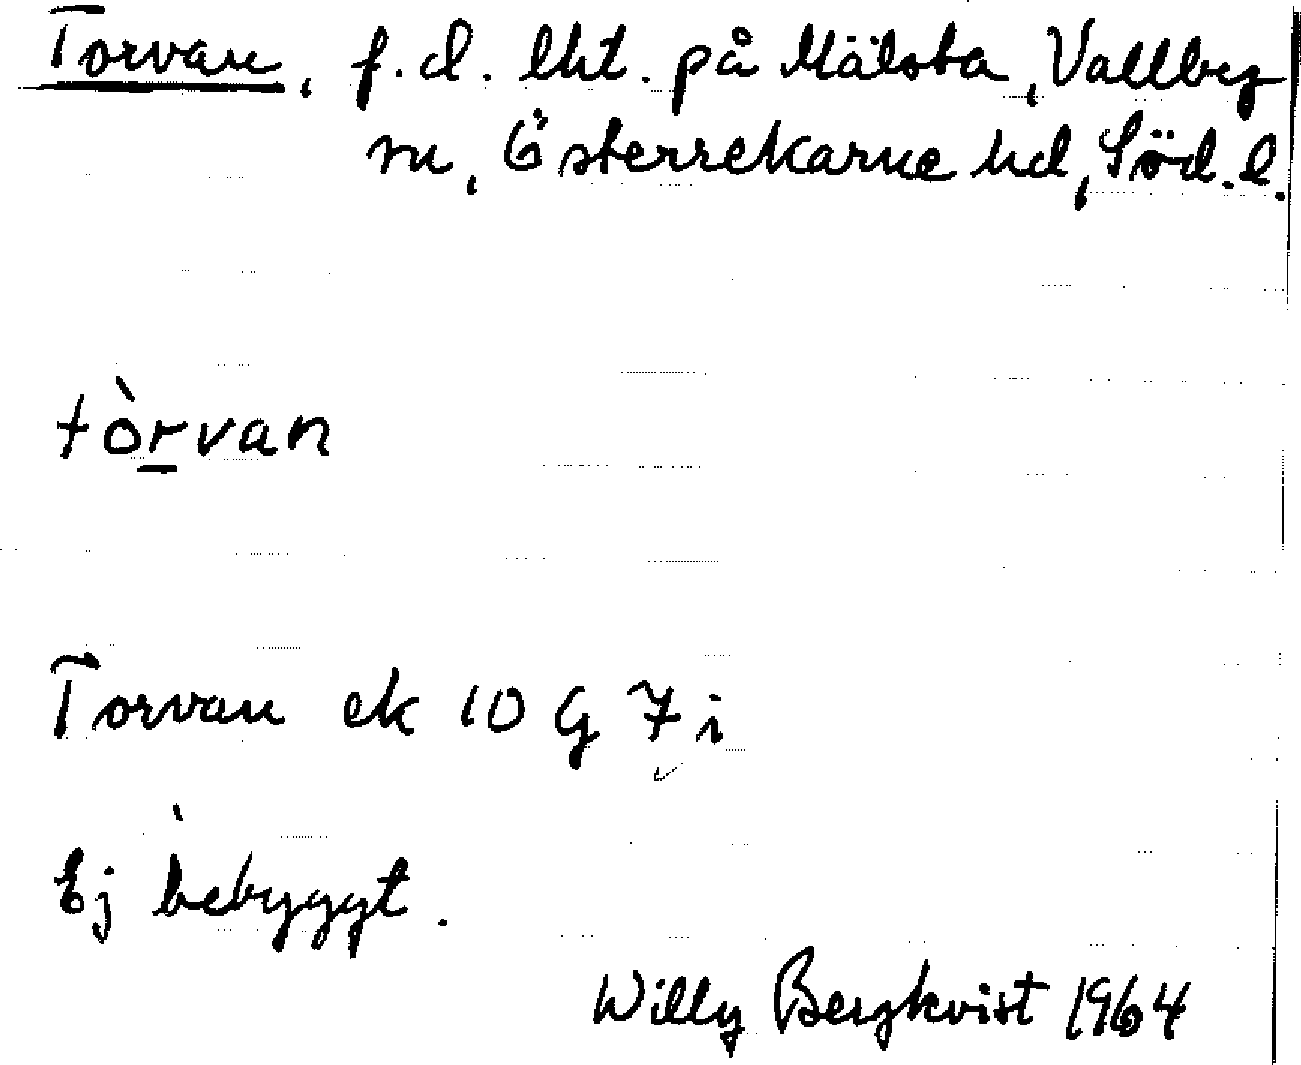 Torvan, f.d. lht. på Mälsta, Vallby
sn, Österrekarne hd, Söd. l.
tòrvan
Torvan ek 10 G 7 i
Ej bebyggt.
Willy Bergkvist 1964